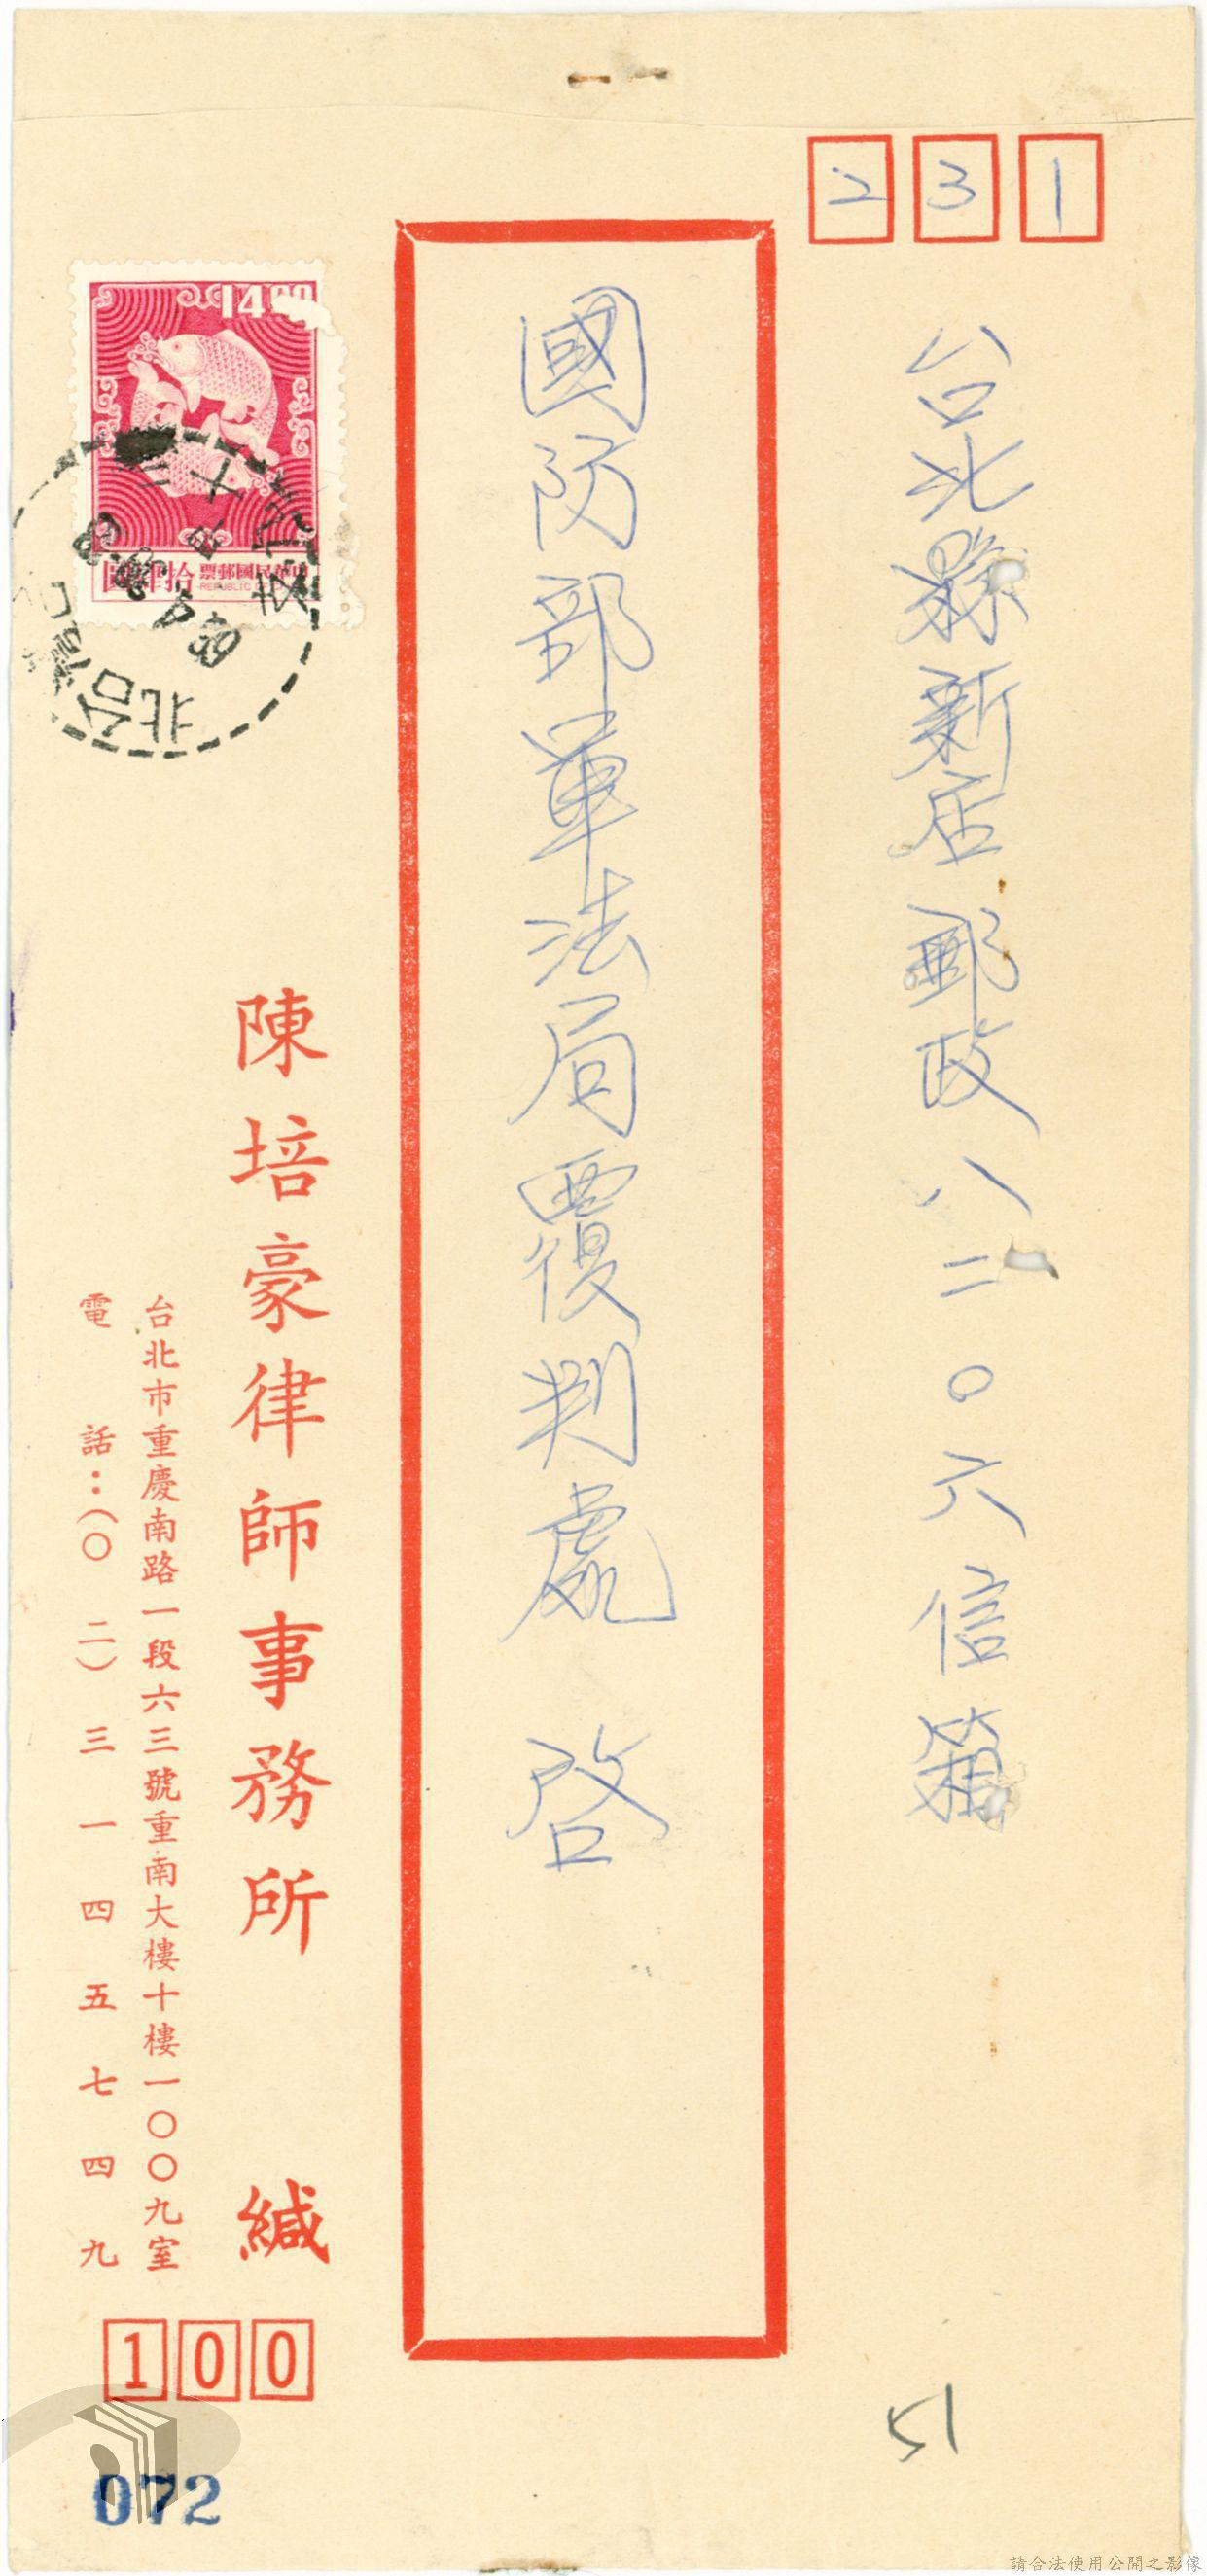 231
台北縣新店郵政八二〇六信箱
國防部軍法局覆判處 啓
14.00
拾肆圓
中華民國郵票
陳培豪律師事務所 緘
台北市重慶南路一段六三號重南大樓十樓一〇〇九室
電話：(〇二)三一四五七四九
100
51
072
請合法使用公開之影像